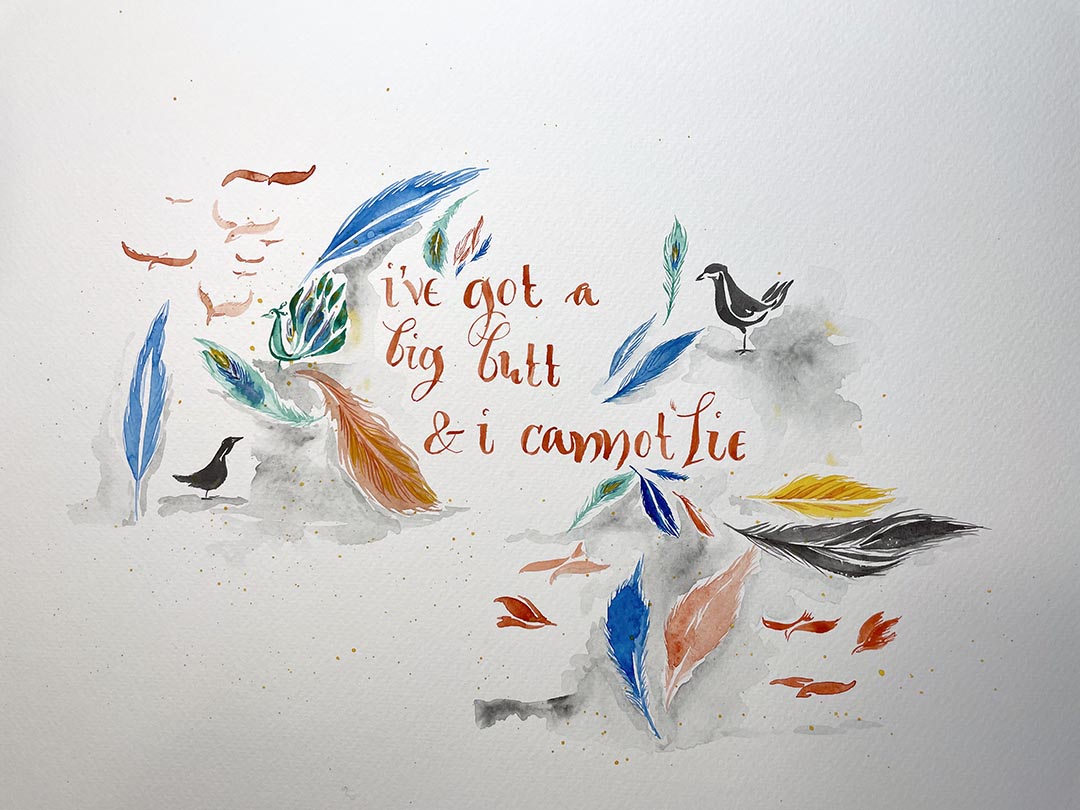 i've got a
big butt
& i cannot lie